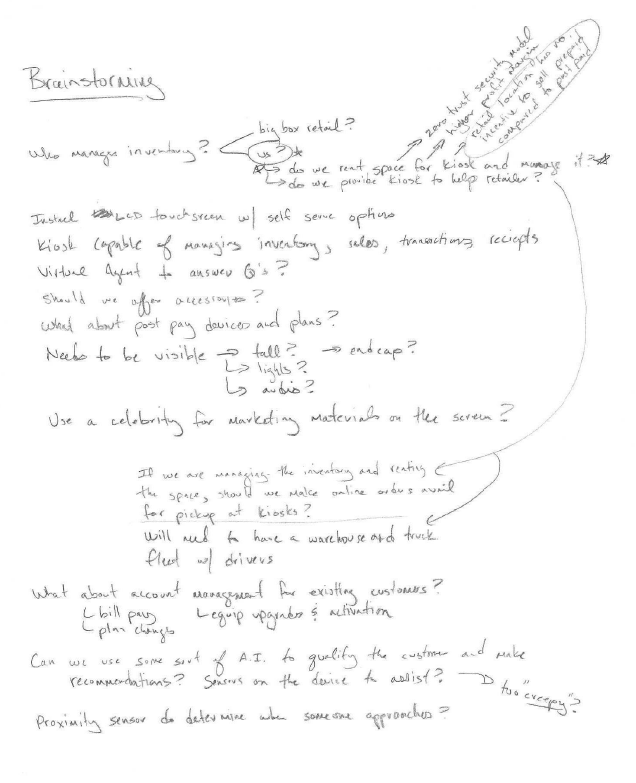 Brainstorming
zero trust security model
higher profit margin
retail location has no
incentive to sell prepaid
compared to post paid
big box retail?
Who manages inventory?
us?
do we rent space for kiosk and manage it?
do we provide kiosk to help retailer?
Install LCD touchscreen w/ self serve options
Kiosk capable of managing inventory, sales, transactions, reciepts
Virtual Agent to answer Q's?
Should we offer accessories?
What about post pay devices and plans?
Needs to be visible → tall? → endcap?
↳ lights?
↳ audio?
Use a celebrity for marketing materials on the screen?
If we are managing the inventory and renting
the space, should we make online orders avail
for pickup at kiosks?
Will need to have a warehouse and truck
fleet w/ drivers
What about account management for existing customers?
↳ bill pay ↳ equip upgrades & activation
↳ plan changes
Can we use some sort of A.I. to qualify the customer and make
recommendations? Sensors on the device to assist? → too "creepy"?
Proximity sensor do determine when someone approaches?